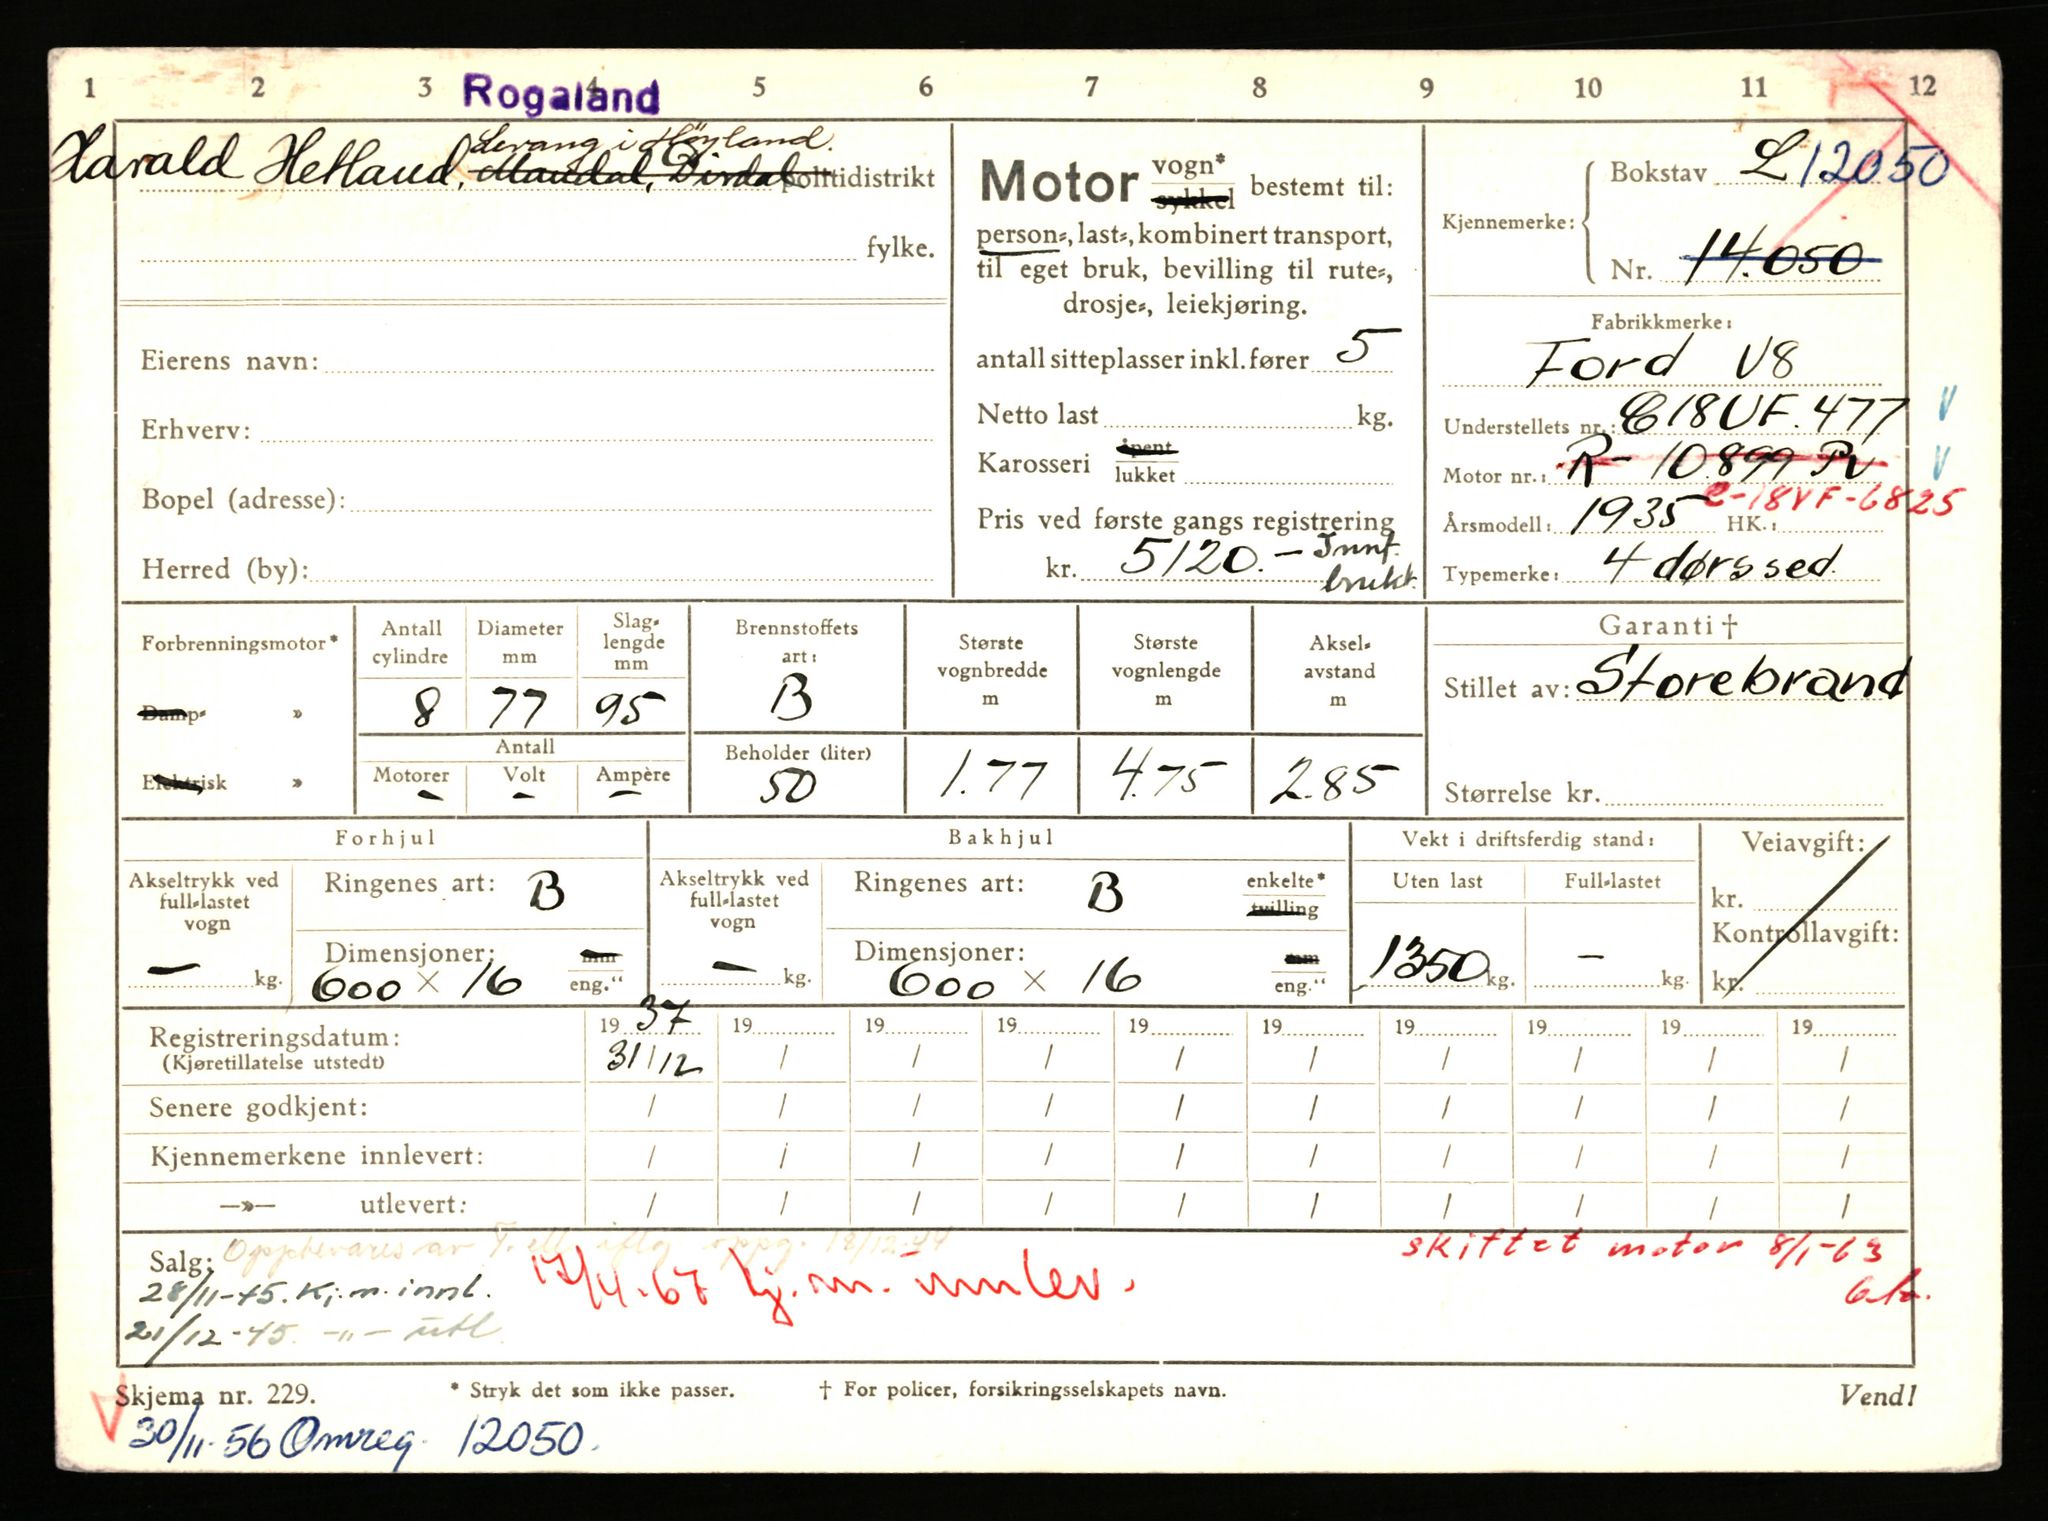 1 2 3 4 5 6 7 8 9 10 11 12
Rogaland
Lerang i Høyland.
Harald Hetland, Maudal, Dirdal politidistrikt
fylke.
Eierens navn:
Erhverv:
Bopel (adresse):
Herred (by):
Motor vogn* sykkel bestemt til:
person-, last-, kombinert transport,
til eget bruk, bevilling til rute-,
drosje-, leiekjøring.
antall sitteplasser inkl. fører 5
Netto last kg.
Karosseri åpent lukket
Pris ved første gangs registrering
kr. 5120.- Innf. brukt.
Kjennemerke: Bokstav L 12050
Nr. 14.050
Fabrikkmerke:
Ford V8
Understellets nr.: C18UF.477 V
Motor nr.: R-10899 Pv V
C-18VF-6825
Årsmodell: 1935 HK.:
Typemerke: 4 dørs sed.
Forbrenningsmotor*
Damp- »
Elektrisk »
Antall cylindre 8
Diameter mm 77
Slag-lengde mm 95
Antall
Motorer - Volt - Ampère -
Brennstoffets art: B
Beholder (liter) 50
Største vognbredde m 1.77
Største vognlengde m 4.75
Aksel-avstand m 2.85
Garanti †
Stillet av: Storebrand
Størrelse kr.
Forhjul
Akseltrykk ved full-lastet vogn - kg.
Ringenes art: B
Dimensjoner: 600 × 16 mm eng."
Bakhjul
Akseltrykk ved full-lastet vogn - kg.
Ringenes art: B enkelte* tvilling
Dimensjoner: 600 × 16 mm eng."
Vekt i driftsferdig stand:
Uten last 1350 kg.
Full-lastet - kg.
Veiavgift:
kr.
Kontrollavgift:
kr.
Registreringsdatum: 19 37 19 19 19 19 19 19 19 19 19
(Kjøretillatelse utstedt) 31/12 / / / / / / / / /
Senere godkjent: / / / / / / / / / /
Kjennemerkene innlevert: / / / / / / / / / /
—»— utlevert: / / / / / / / / / /
Salg: Oppbevares av T. ell. iflg. oppg. 18/12-44
skiftet motor 8/1-63
28/11-45. Kj.m. innl.
17/4-67 kj.m. innlev.
21/12-45. -"- utl.
Skjema nr. 229. * Stryk det som ikke passer. † For policer, forsikringsselskapets navn. Vend!
30/11-56 Omreg. 12050.